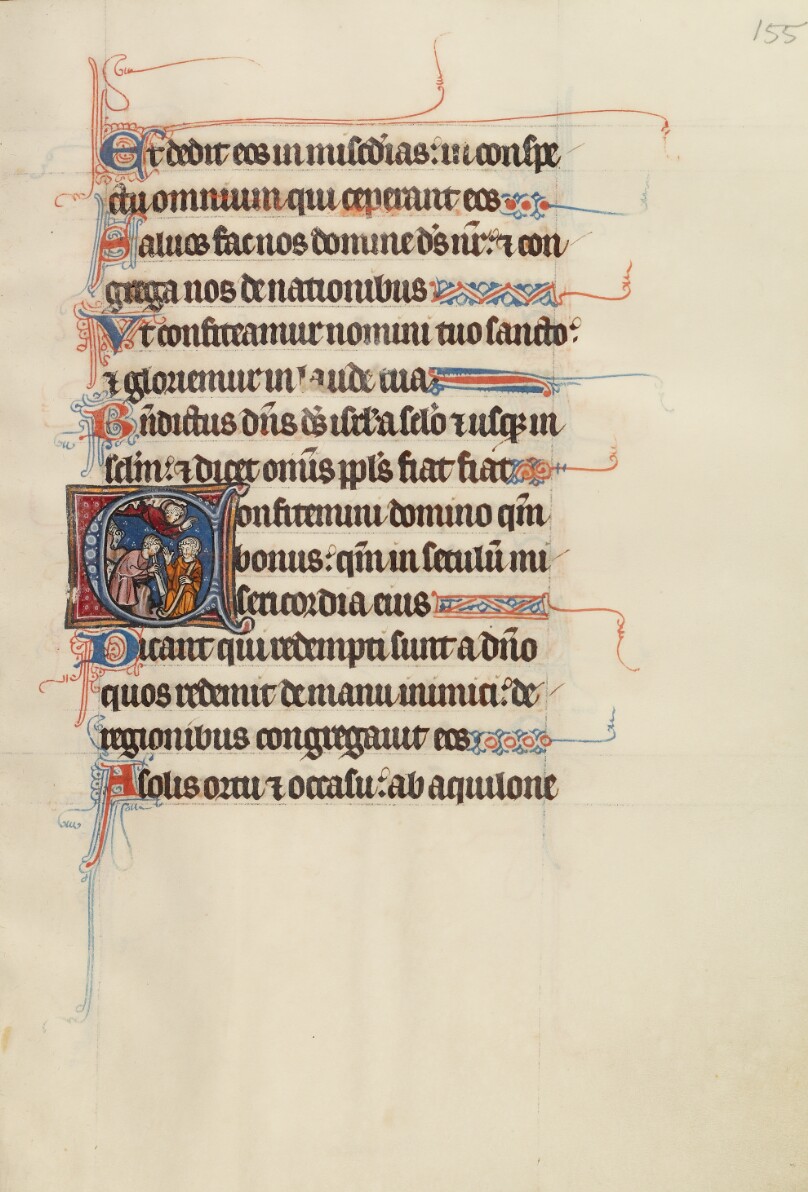 155
Et dedit eos in mis̄cdias: in conspe
ctu omnium qui ceperant eos
Saluos fac nos domine d̄s nr̄: ⁊ con
grega nos de nationibus
Vt confiteamur nomini tuo sancto:
⁊ gloriemur in laude tua
Bn̄dictus dn̄s d̄s isrl̄ a sclō ⁊ usqꝫ in
scl̄m: ⁊ dicet omīs ppl̄s fiat fiat
Confitemini domino qm̄
bonus: qm̄ in seculū mi
sericordia eius
Dicant qui redempti sunt a dn̄o
quos redemit de manu inimici: de
regionibus congregauit eos
A solis ortu ⁊ occasu: ab aquilone